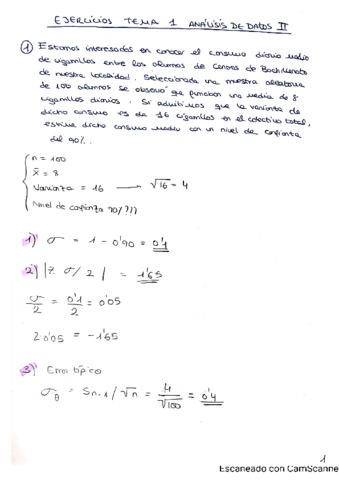 EJERCICIOS TEMA 1 ANÁLISIS DE DATOS II
① Estamos interesados en conocer el consumo diario medio
de cigarrillos entre los alumnos de Centros de Bachillerato
de nuestra localidad. Seleccionada una muestra aleatoria
de 100 alumnos se observó que fumaban una media de 8
cigarrillos diarios. Si admitimos que la varianza de
dicho consumo es de 16 cigarrillos en el colectivo total,
estime dicho consumo medio con un nivel de confianza
del 90%.
n = 100
x̄ = 8
Varianza = 16 → √16 = 4
Nivel de confianza 90%
1) σ = 1 - 0'90 = 0'1
2) |z σ/2| = 1'65
σ/2 = 0'1/2 = 0'05
z 0'05 = -1'65
3) Error típico
σθ = Sn-1/√n = 4/√100 = 0'4
1
Escaneado con CamScanne